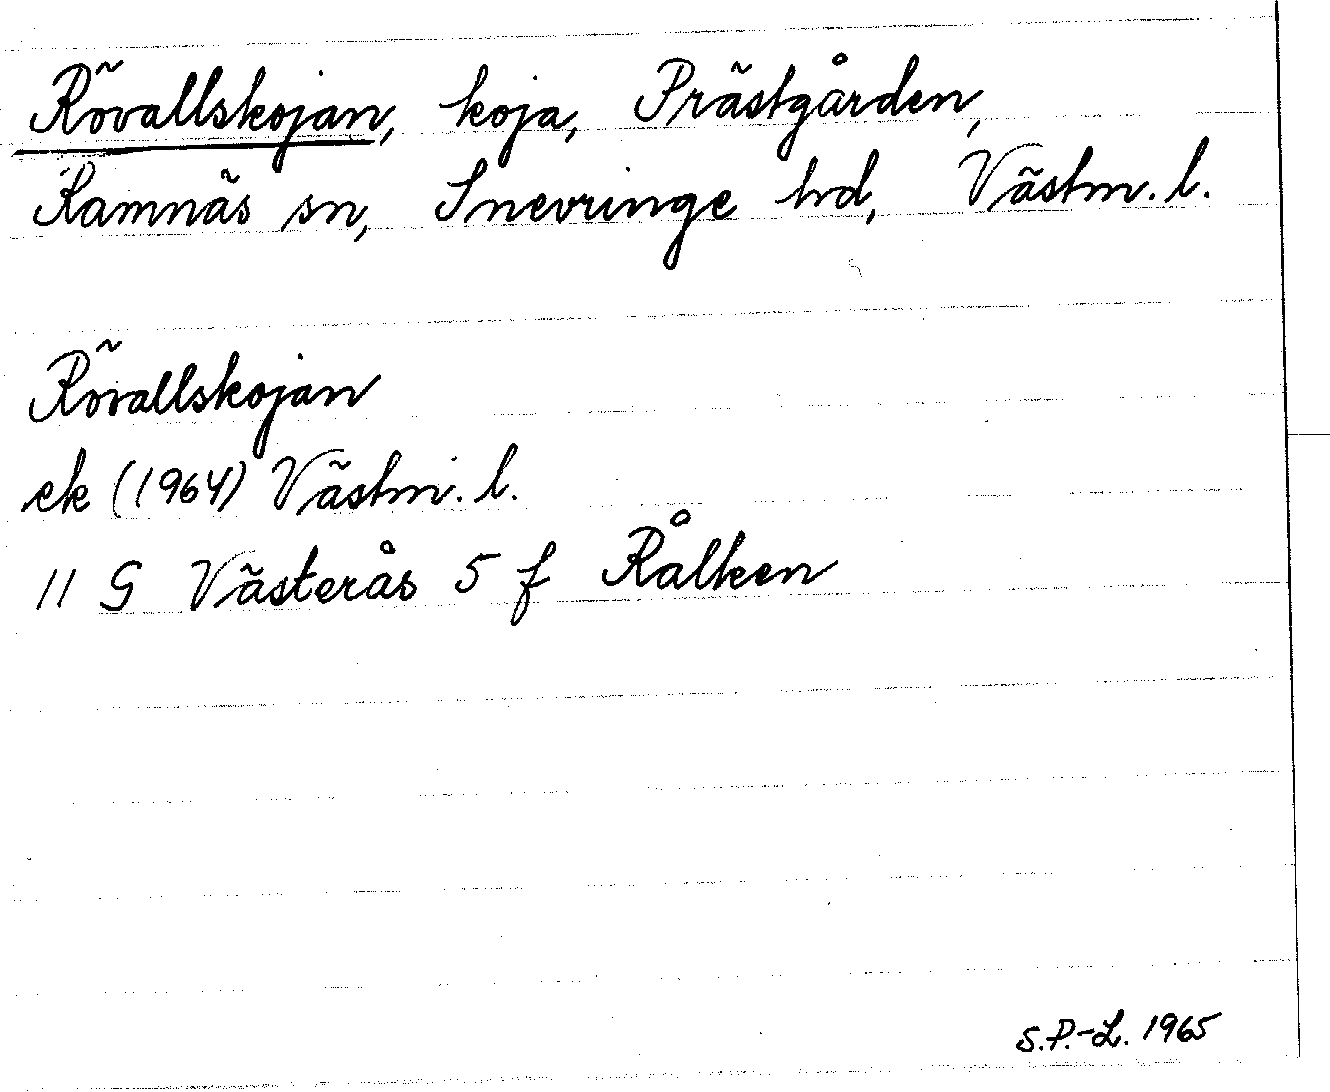 Rövallskojan, koja, Prästgården,
Ramnäs sn, Snevringe hd, Västm. l.
Rövallskojan
ek (1964) Västm. l.
11 G Västerås 5 f Rålken
S.P.-L. 1965